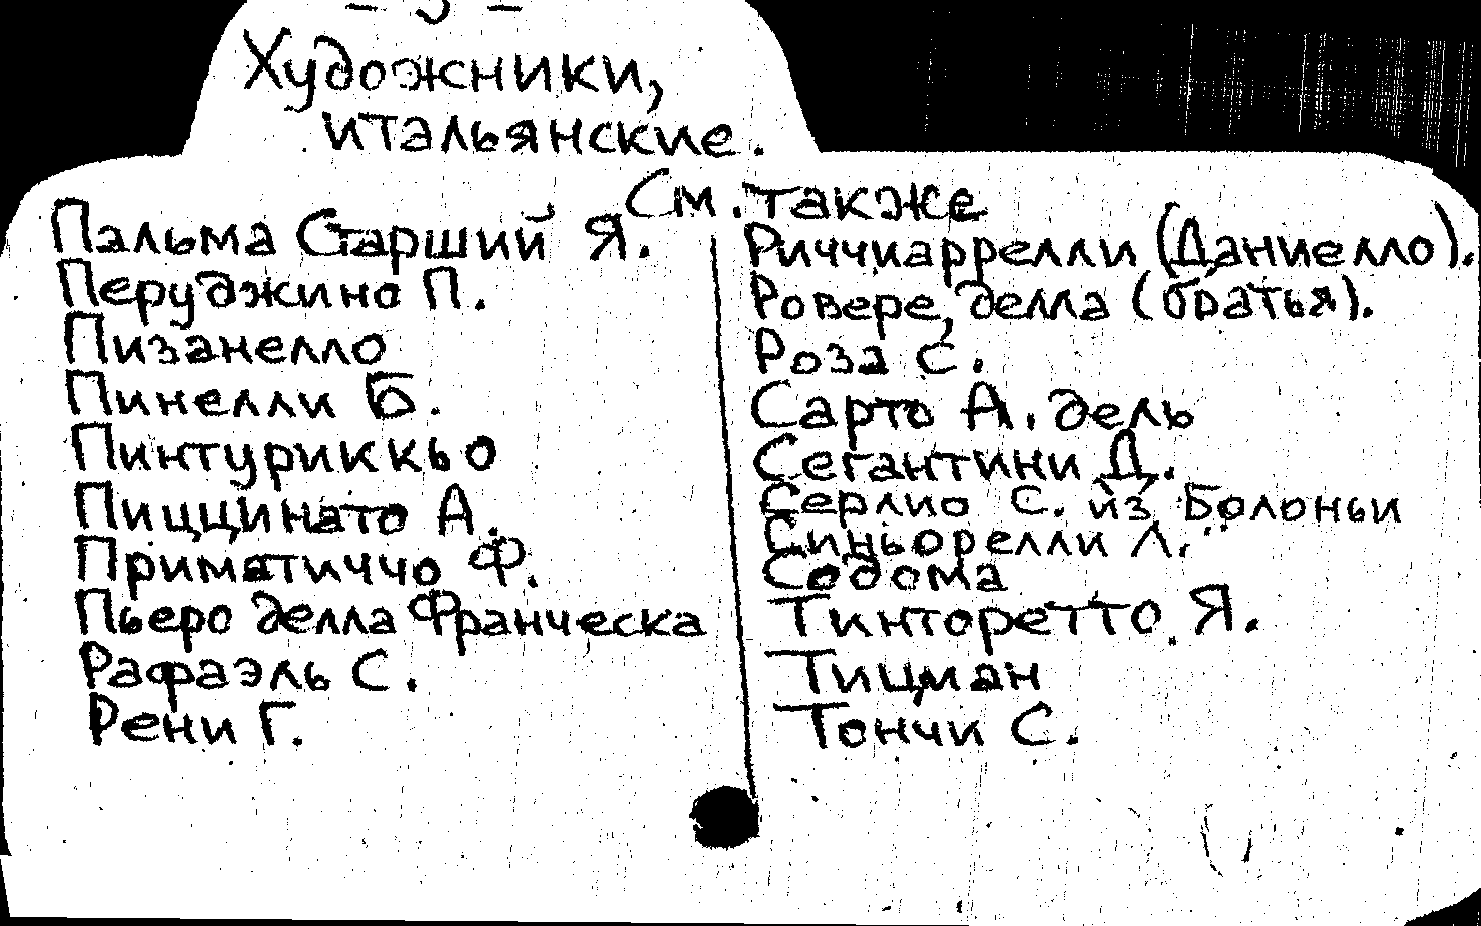 - 3 -
Художники,
итальянские.
См. также
Пальма Старший Я.
Перуджино П.
Пизанелло
Пинелли Б.
Пинтуриккьо
Пиццинато А.
Приматиччо Ф.
Пьеро делла Франческа
Рафаэль С.
Рени Г.
Риччиаррелли (Даниелло).
Ровере, делла (братья).
Роза С.
Сарто А. дель
Сегантини Д.
Серлио С. из Болоньи
Синьорелли Л.
Содома
Тинторетто Я.
Тициан
Тончи С.